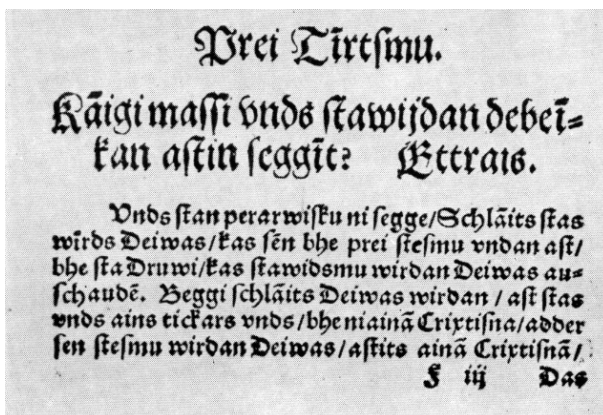 Prei Tīrtsmu.
Kāigi maſſi vnds ſtawijdan debeī⸗
kan aſtin ſeggīt? Ettrais.
Vnds ſtan perarwiſku ni ſegge/Schlāits ſtas
wīrds Deiwas/kas ſēn bhe prei ſteſmu vndan aſt/
bhe ſta Druwi/kas ſtawidſmu wirdan Deiwas au⸗
ſchaudē. Beggi ſchlāits Deiwas wirdan / aſt ſtas
vnds ains tickars vnds/bhe niainā Crixtiſna/adder
ſen ſteſmu wirdan Deiwas/aſtits ainā Crixtiſnā/
F iij Das